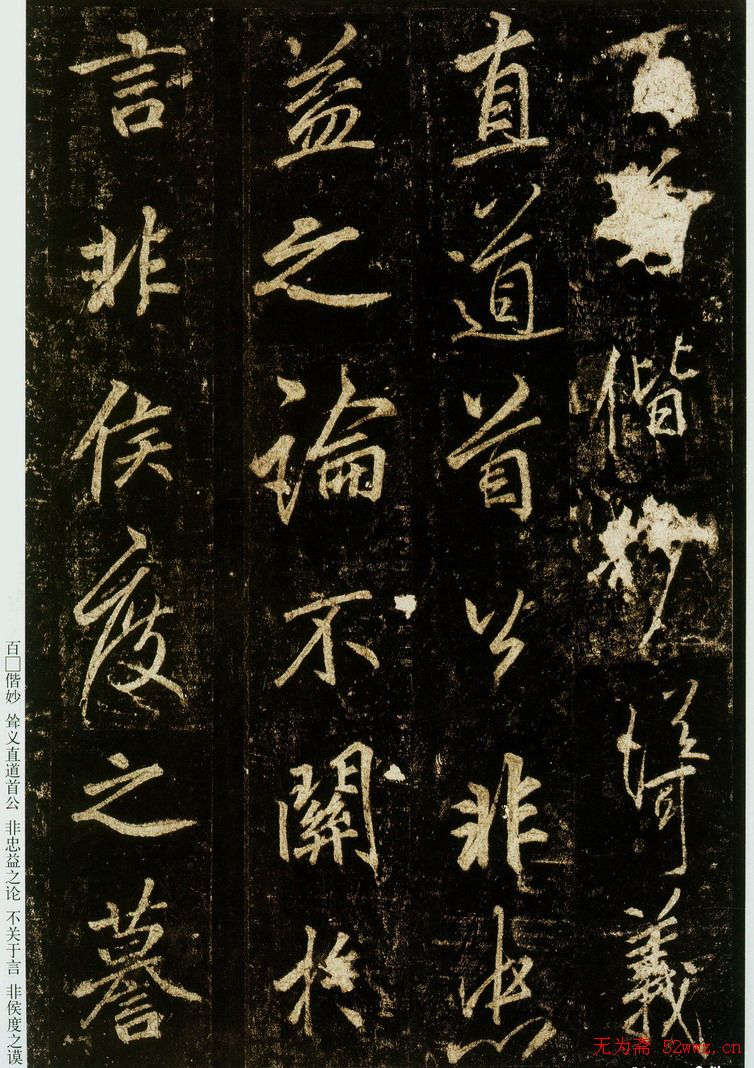 百偕妙義
直道首公非忠
益之論不關於
言非侯度之謩
百□偕妙 耸义直道首公 非忠益之论 不关于言 非侯度之谟
无为斋 52wwz.cn